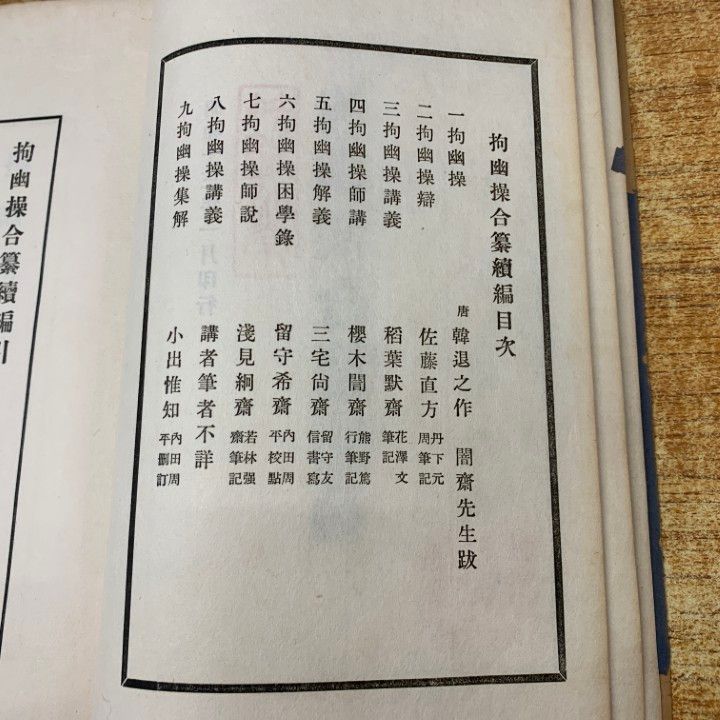 拘幽操合纂續編目次
一拘幽操 唐 韓退之作 闇齋先生跋
二拘幽操辯 佐藤直方 丹下元周筆記
三拘幽操講義 稻葉默齋 花澤文筆記
四拘幽操師講 櫻木誾齋 熊野篤行筆記
五拘幽操解義 三宅尙齋 留守友信書寫
六拘幽操困學錄 留守希齋 內田周平校點
七拘幽操師說 淺見絅齋 若林强齋筆記
八拘幽操講義 講者筆者不詳
九拘幽操集解 小出惟知 內田周平刪訂
拘幽操合纂續編引